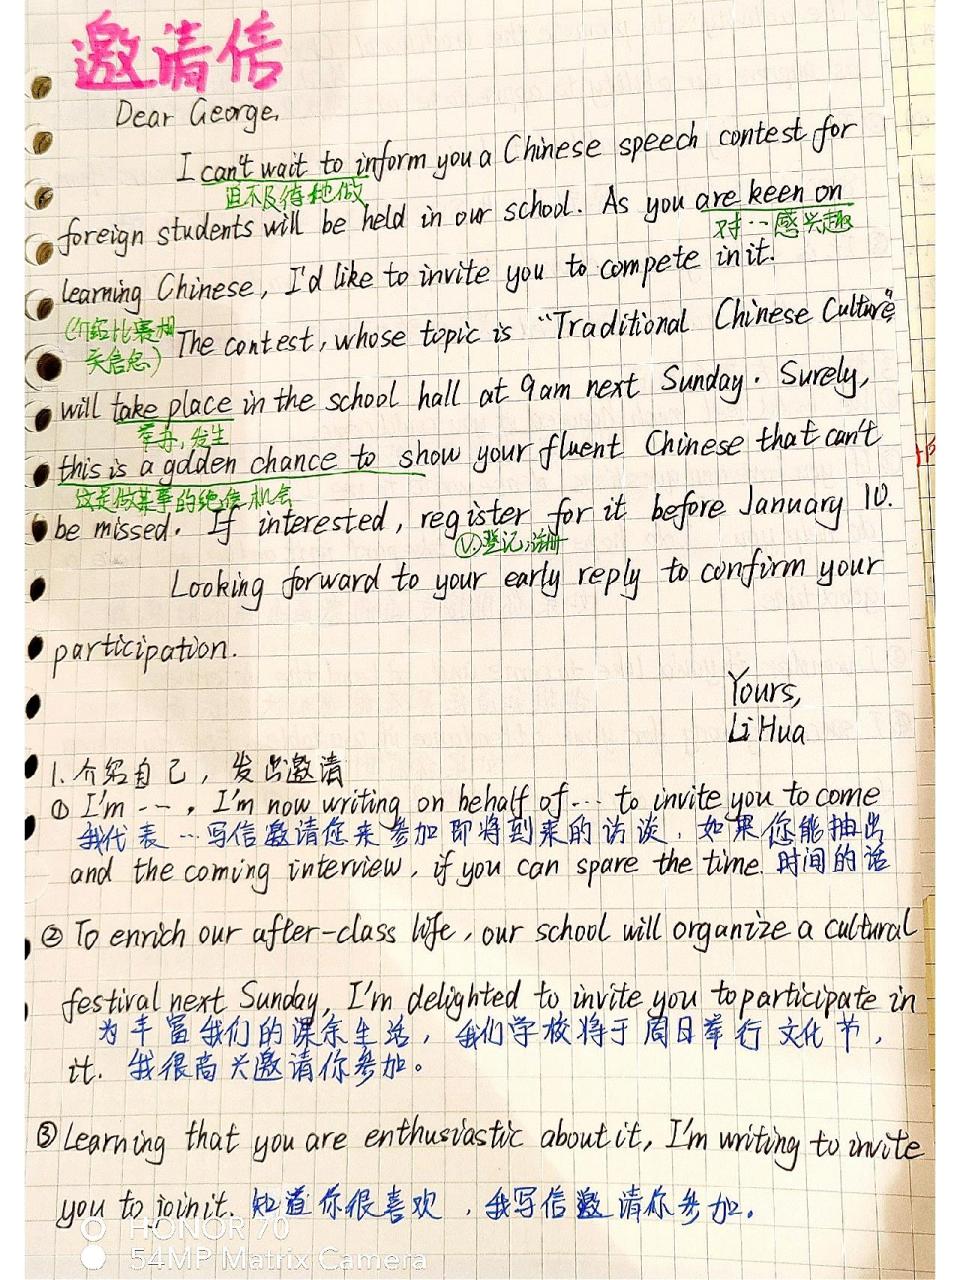 邀请信
Dear George,
I can't wait to inform you a Chinese speech contest for
迫不及待地做
foreign students will be held in our school. As you are keen on
对…感兴趣
learning Chinese, I'd like to invite you to compete in it.
(介绍比赛相
关信息)
The contest, whose topic is "Traditional Chinese Culture",
will take place in the school hall at 9am next Sunday. Surely,
举办,发生
this is a golden chance to show your fluent Chinese that can't
这是做某事的绝佳机会
be missed. If interested, register for it before January 10.
V.登记,注册
Looking forward to your early reply to confirm your
participation.
Yours,
Li Hua
1.介绍自己,发出邀请
① I'm --, I'm now writing on behalf of … to invite you to come
我代表…写信邀请您来参加即将到来的访谈,如果您能抽出
and the coming interview, if you can spare the time. 时间的话
② To enrich our after-class life, our school will organize a cultural
festival next Sunday, I'm delighted to invite you to participate in
为丰富我们的课余生活,我们学校将于周日举行文化节,
it. 我很高兴邀请你参加。
③ Learning that you are enthusiastic about it, I'm writing to invite
you to join it. 知道你很喜欢,我写信邀请你参加。
HONOR 70
54MP Matrix Camera